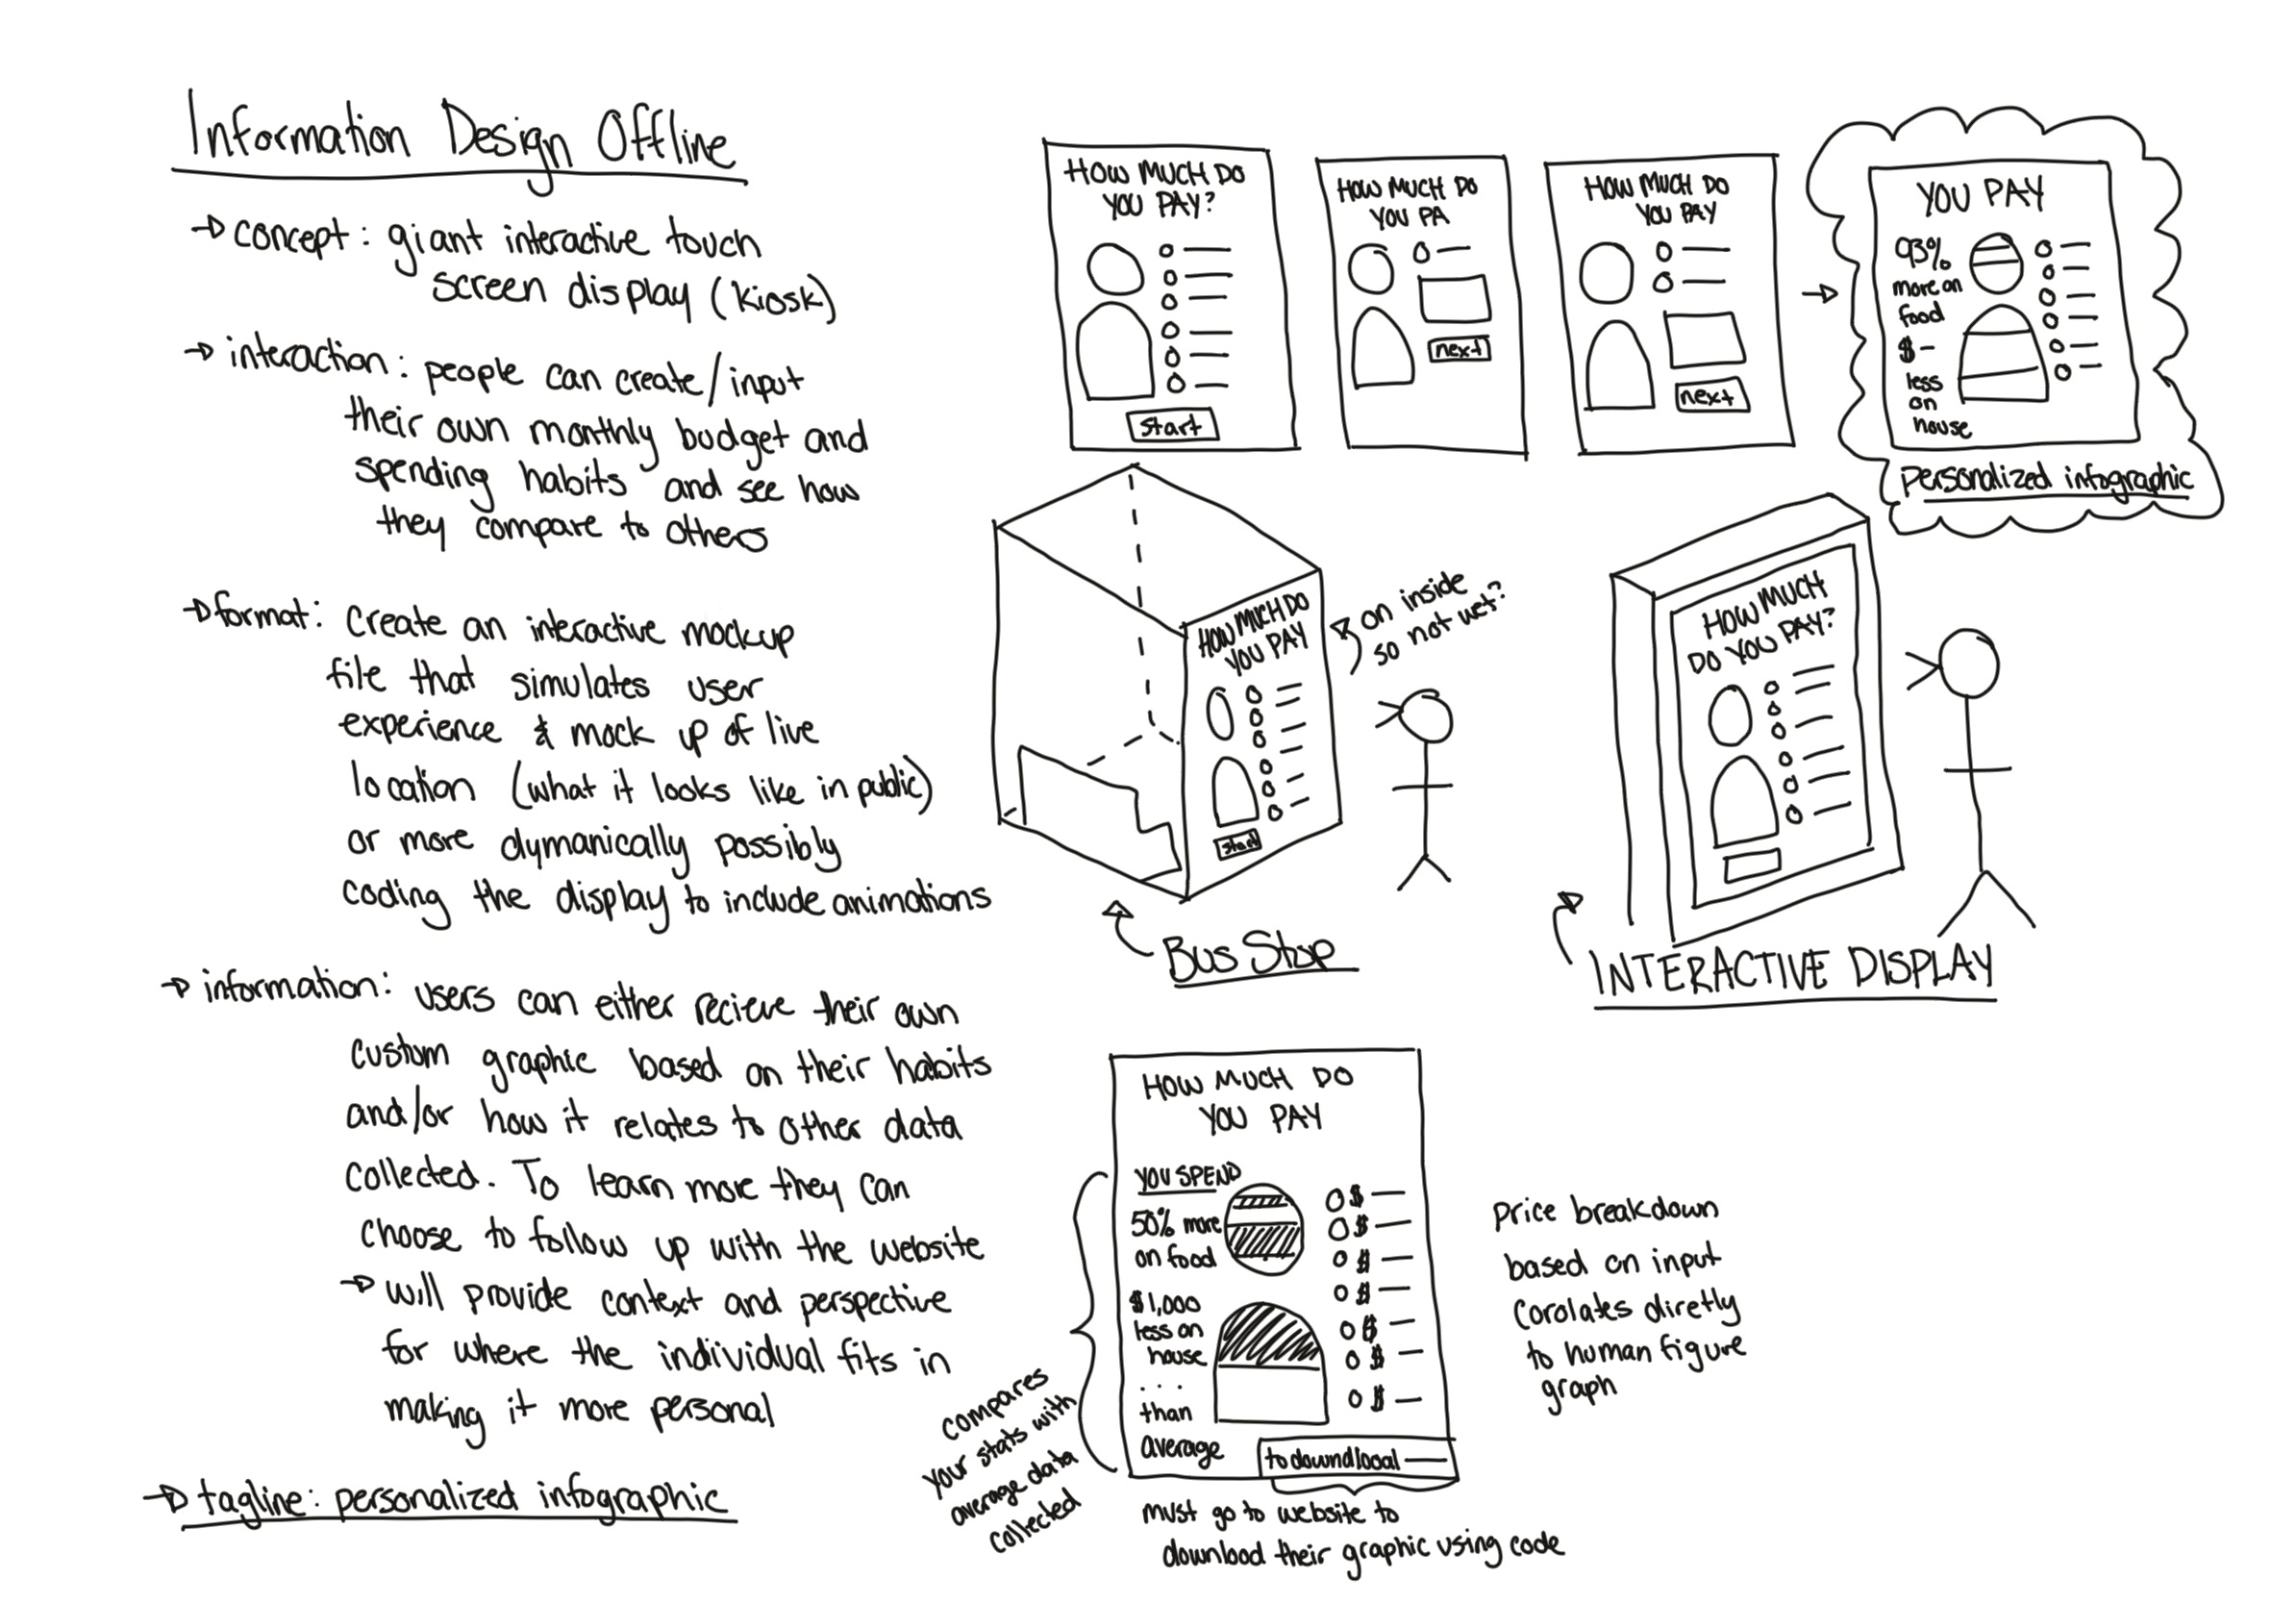 Information Design Offline
→ concept: giant interactive touch
screen display (kiosk)
→ interaction: people can create/input
their own monthly budget and
spending habits and see how
they compare to others
→ format: create an interactive mockup
file that simulates user
experience & mock up of live
location (what it looks like in public)
or more dymanically possibly
coding the display to include animations
→ information: users can either recieve their own
custom graphic based on their habits
and/or how it relates to other data
collected. To learn more they can
choose to follow up with the website
→ will provide context and perspective
for where the individual fits in
making it more personal
→ tagline: personalized infographic
HOW MUCH DO
YOU PAY?
start
HOW MUCH DO
YOU PA
next
HOW MUCH DO
YOU PAY
next
YOU PAY
93%
more on
food
$ -
less
on
house
personalized infographic
HOW MUCH DO
YOU PAY
start
on inside
so not wet?
BUS STOP
HOW MUCH
DO YOU PAY?
INTERACTIVE DISPLAY
HOW MUCH DO
YOU PAY
YOU SPEND
50% more
on food
$1,000
less on
house
...
than
average
$
$
$
$
$
$
$
to download
compares
your stats with
average data
collected
must go to website to
download their graphic using code
price breakdown
based on input
corolates diretly
to human figure
graph